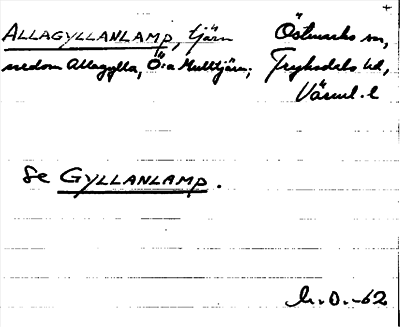 +
ALLAGYLLANLAMP, tjärn Östmarks sn,
nedom Allagylla, Ö:a Multtjärn; Fryksdals hd,
Värml. l
Se GYLLANLAMP.
h.D.-62